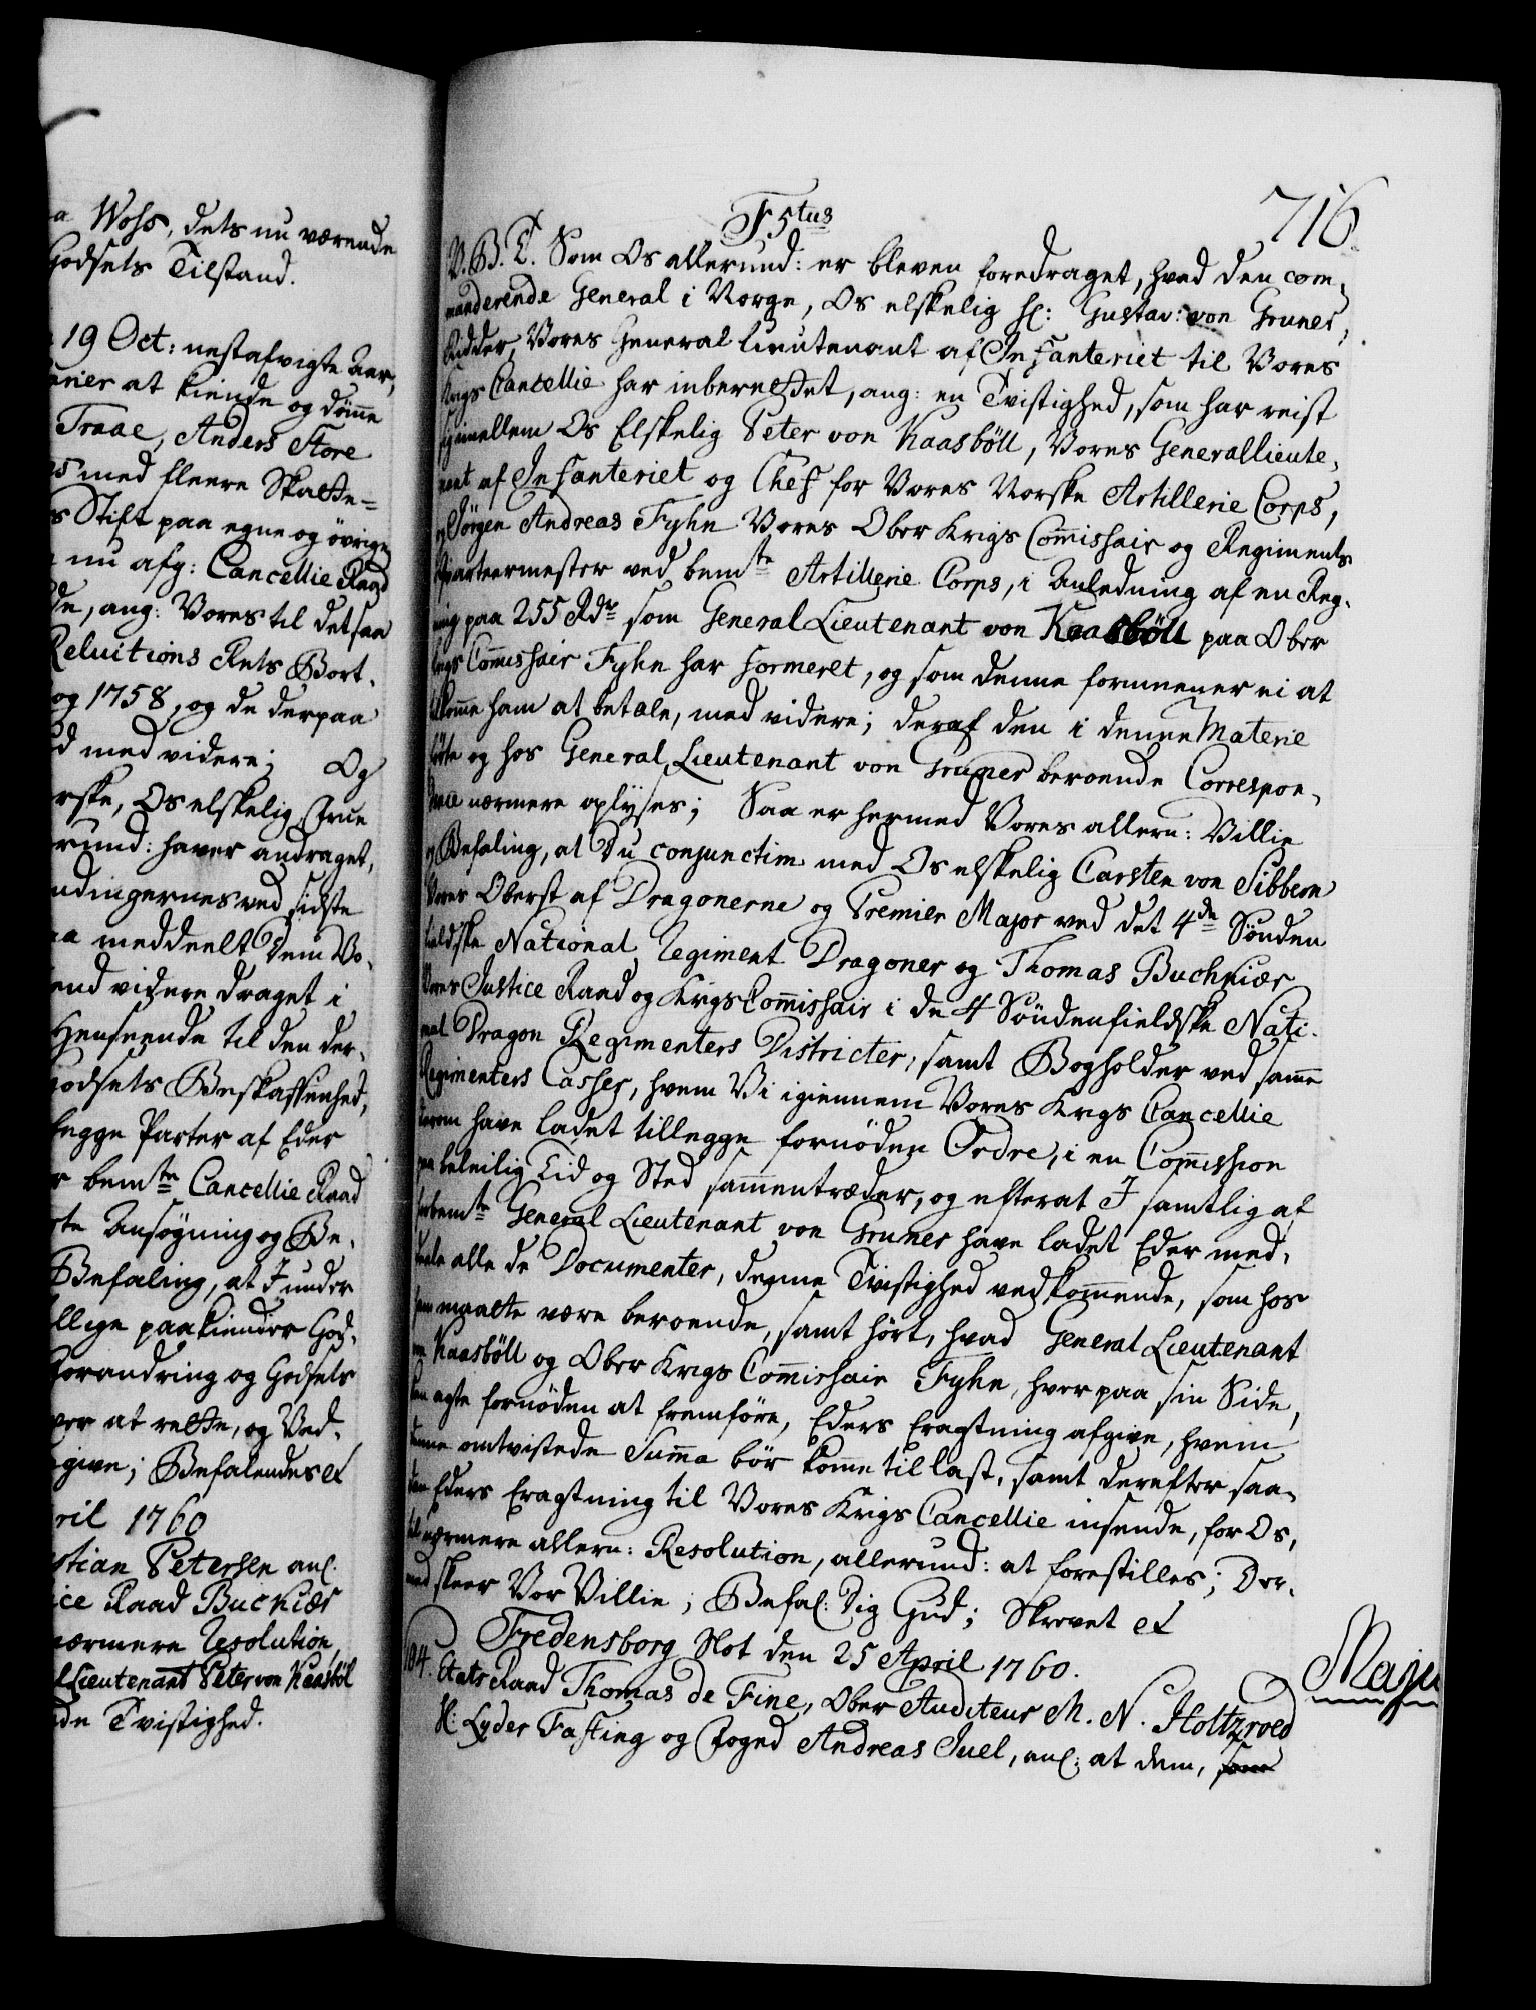 a Wohs, dets nu værende
Godsets Tilstand.
19 Oct: nestafvigte Aar,
arier at kiende og dömme
Traae, Anders Store
med fleere Skatte-
s Stift paa egne og övrige
nu afg: Cancellie Raad
de, ang: Vores til det saa
Reluitions Rets Bort-
og 1758, og de derpaa
d med videre; Og
rske, Os elskelig Frue
rund: haver andraget,
ndingernes ved sidste
aa meddeelt Dem Vo-
end videre draget i
Henseende til den der-
Godsets Beskaffenhed,
begge Parter af Eder
r bemte Cancellie Raad
te Ansögning og Be-
Befaling, at I under
llige paakiender God-
Forandring og Godsets
ver at rette, og Ved-
give; Befalendes etc
ril 1760
stian Petersen anl.
ice Raad Buchiær
nærmere Resolution,
l Lieutenant Peter von Kaasböl
de Tvistighed.
716.
F 5tus
V. G. T. Som Os allerund: er bleven foredraget, hvad den com-
manderende General i Norge, Os elskelig Hr: Gustav: von Gruner,
Ridder, Vores General Lieutenant af Infanteriet til Vores
Krigs Cancellie har inberettet, ang: en Tvistighed, som har reist
sig imellem Os Elskelig Peter von Kaasböll, Vores General Lieute-
nant af Infanteriet og Chef for Vores Norske Artillerie Corps,
og Jörgen Andreas Fyhn Vores Ober Krigs Commissair og Regiments
Qvarteermester ved bemte Artillerie Corps, i Anledning af en Reg-
ning paa 255 Rdr som General Lieutenant von Kaasböll paa Ober
Krigs Commissair Fyhn har formeret, og som denne formeener ei at
tilkomme ham at betale, med videre; deraf den i denne Materie
förte og hos General Lieutenant von Gruner beroende Correspon-
dence nærmere oplyses; Saa er hermed Vores allern: Villie
og Befaling, at Du conjunctim med Os elskelig Carsten von Sibbern
Vores Oberst af Dragonerne og Premier Major ved det 4de Sönden
fieldske National Regiment Dragoner og Thomas Buchhiær
Vores Justice Raad og Krigs Commissair i de 4 Söndenfieldske Nati-
onal Dragon Regimenters Districter, samt Bogholder ved samme
Regimenters Casser, hvem Vi igiennem Vores Krigs Cancellie
derom have ladet tillegge fornöden Ordre, i en Commission
paa beleilig Tid og Sted sammentræder, og efterat I samtlig af
forbemte General Lieutenant von Gruner have ladet Eder med-
deele alle de Documenter, denne Tvistighed vedkommende, som hos
ham maatte være beroende, samt hört, hvad General Lieutenant
von Kaasböll og Ober Krigs Commissair Fyhn, hver paa sin Side,
kan agte fornöden at fremföre, Eders Eragtning afgive, hvem
denne omtvistede Summa bör komme til last, samt derefter saa-
dan Eders Eragtning til Vores Krigs Cancellie insende, for Os,
til nærmere allern: Resolution, allerund: at forestilles; Der-
med skeer Vor Villie; Befal: Dig Gud; Skrevet etc
Fredensborg Slot den 25 April 1760.
184. Etats Raad Thomas de Fine, Ober Auditeur M. N. Holtzroed
Hr: Lyder Fasting og Foged Andreas Juel, anl: at dem, som
Maju